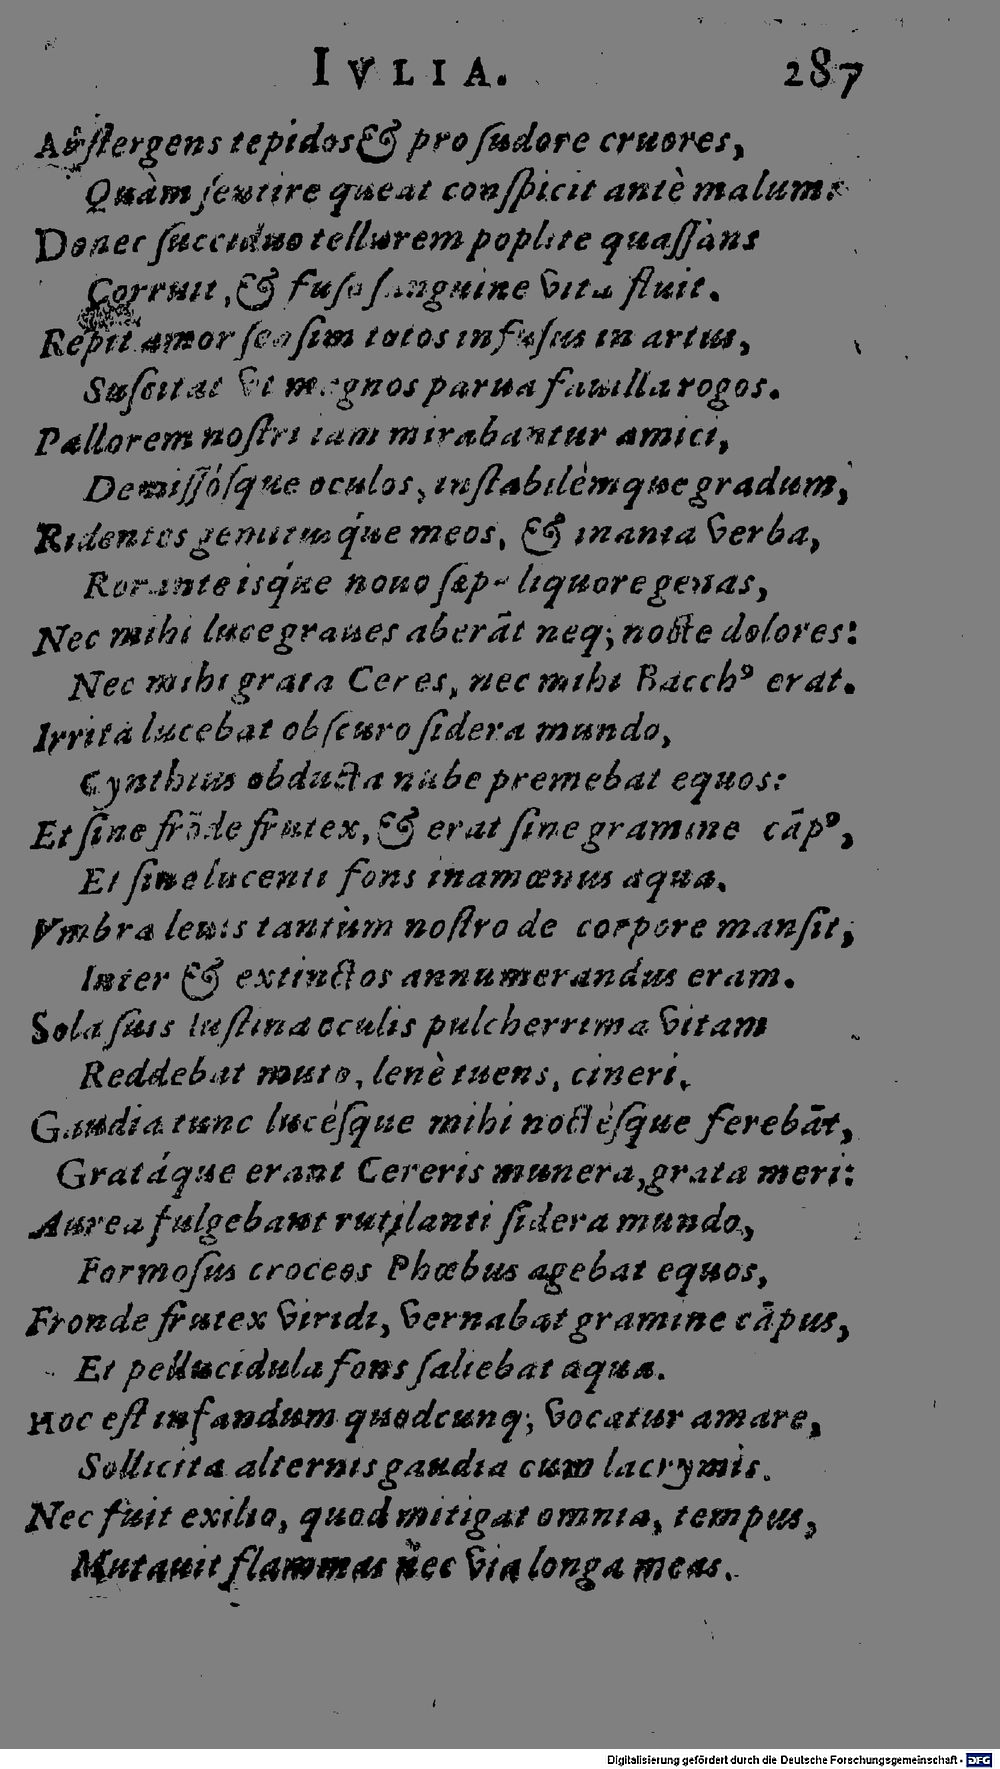 IVLIA. 287
Abſtergens tepidos & pro ſudore cruores,
Quàm ſentire queat conſpicit antè malum:
Donec ſucciduo tellurem poplite quaſſans
Corruit, & fuſo ſanguine vita fluit.
Repit amor ſenſim totos infuſus in artus,
Suſcitat vt magnos parua fauilla rogos.
Pallorem noſtri iam mirabantur amici,
Demiſſóſque oculos, inſtabilémque gradum,
Ridentes gemitusq́ue meos, & inania verba,
Roranteisq́ue nouo ſæpe liquore genas,
Nec mihi luce graues aberãt neq; nocte dolores:
Nec mihi grata Ceres, nec mihi Bacchꝰ erat.
Irrita lucebat obſcuro ſidera mundo,
Cynthius obducta nube premebat equos:
Et ſine frõde frutex, & erat ſine gramine cãpꝰ,
Et ſine lucenti fons inamœnus aqua.
Vmbra leuis tantùm noſtro de corpore manſit,
Inter & extinctos annumerandus eram.
Sola ſuis Iuſtina oculis pulcherrima vitam
Reddebat muto, lenè tuens, cineri.
Gaudia tunc lucéſque mihi noctéſque ferebãt,
Gratáque erant Cereris munera, grata meri:
Aurea fulgebant rutilanti ſidera mundo,
Formoſus croceos Phœbus agebat equos,
Fronde frutex viridi, vernabat gramine cãpus,
Et pellucidula fons ſaliebat aqua.
Hoc eſt infandum quodcunq; vocatur amare,
Sollicita alternis gaudia cum lacrymis.
Nec fuit exilio, quod mitigat omnia, tempus,
Mutauit flammas nec via longa meas.
Digitalisierung gefördert durch die Deutsche Forschungsgemeinschaft - DFG